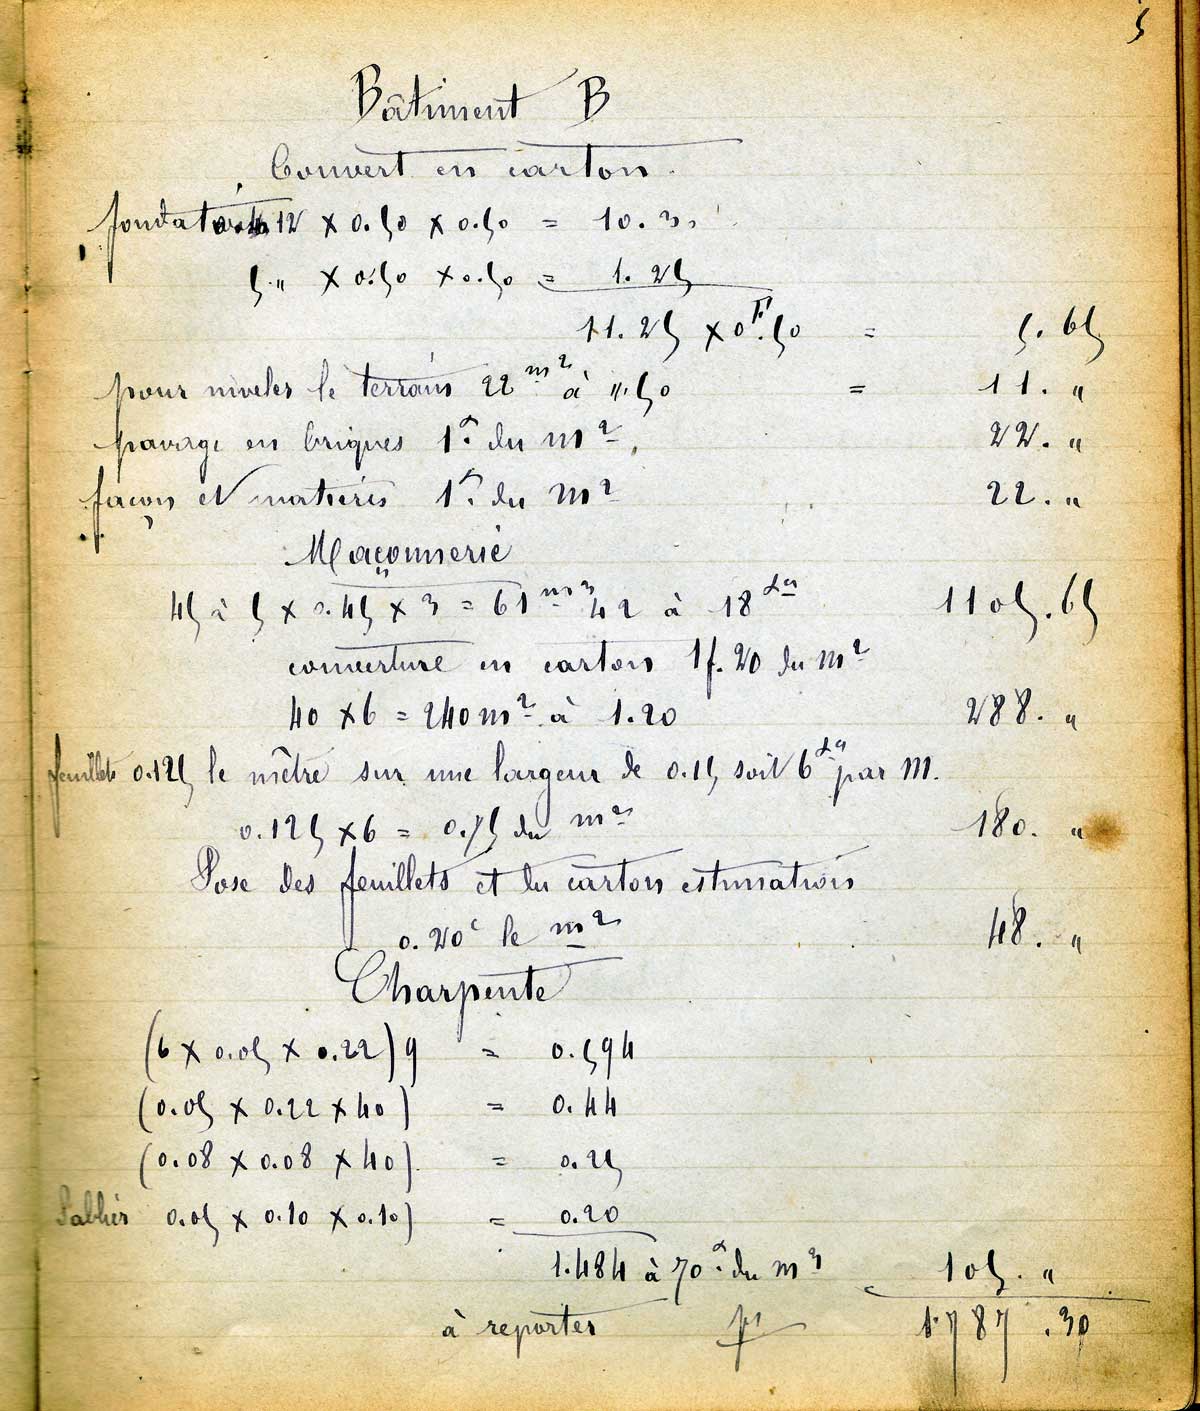 5
Bâtiment B
Couvert en carton
fondations 12 × 0.50 × 0.50 = 10.3
5." × 0.50 × 0.50 = 1.25
11.25 × 0F.50 = 5.65
pour niveler le terrain 22 m2 à ".50 = 11. "
pavage en briques 1f. du m2 22. "
façon et matières 1f. du m2 22. "
Maçonnerie
45 à 5 × 0.45 × 3 = 61 m3 42 à 18 1105.65
couverture en carton 1f.20 du m2
40 × 6 = 240 m2 à 1.20 288. "
feuillets 0.125 le mêtre sur une largeur de 0.15 soit 6 par m.
0.125 × 6 = 0.75 du m2 180. "
Pose des feuillets et du carton estimation
0.20c le m2 48. "
Charpente
(6 × 0.05 × 0.22) 9 = 0.594
(0.05 × 0.22 × 40) = 0.44
(0.08 × 0.08 × 40) = 0.25
Sablier 0.05 × 0.10 × 0.10) = 0.20
1.484 à 70f. du m3 105. "
à reporter 1787.30